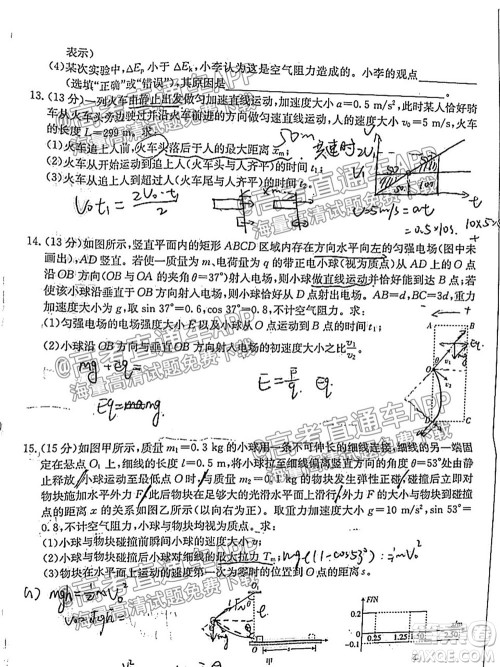 表示)
(4)某次实验中,ΔEp 小于 ΔEk,小李认为这是空气阻力造成的。小李的观点
(选填“正确”或“错误”),其原因是
13. (13 分)一列火车由静止出发做匀加速直线运动,加速度大小 a=0.5 m/s²,此时某人恰好骑
车从火车头旁边驶过并沿火车前进的方向做匀速直线运动,人的速度大小 v₀=5 m/s,火车
的长度 L=299 m。求:
(1)火车追上人前,火车头落后于人的最大距离 xm;
(2)火车从开始运动到追上人(火车头与人齐平)的时间 t₁;
(3)火车从追上人到超过人(火车尾与人齐平)的时间 t₂。
50m
高速时2V₀
V₀t₁ = 2V₀·t₁/2
V=5m/s=at
0.5×10s.
14. (13 分)如图所示,竖直平面内的矩形 ABCD 区域内存在方向水平向左的匀强电场(图中未
画出),AD 竖直。若使一质量为 m、电荷量为 q 的带正电小球(视为质点)从 AD 上的 O 点
沿 OB 方向(OB 与 OA 的夹角 θ=37°)射入电场,则小球做直线运动并恰好能到达 B 点;若
使该小球沿垂直于 OB 方向射入电场,则小球恰好从 D 点射出电场。AB=d,BC=3d,重力
加速度大小为 g,取 sin 37°=0.6,cos 37°=0.8,不计空气阻力。求:
(1)匀强电场的电场强度大小 E 以及小球从 O 点运动到 B 点的时间 t₁;
(2)小球沿 OB 方向与垂直 OB 方向射入电场的初速度大小之比 v₁/v₂。
mg+Eq=
E=F/q. Eq.
A
B
O
D
C
15. (15 分)如图甲所示,质量 m₁=0.3 kg 的小球用一条不可伸长的细线连接,细线的另一端固
定在悬点 O₁ 上,细线的长度 l=0.5 m,将小球拉至细线偏离竖直方向的角度 θ=53°处由静
止释放,小球运动至最低点时与质量 m₂=0.1 kg 的物块发生弹性正碰,碰撞后立即对
物块施加水平外力 F,此后物块在足够大的光滑水平面上滑行,外力 F 的大小与物块到碰撞
点的距离 x 的关系如图乙所示(以向右为正)。取重力加速度大小 g=10 m/s²,sin 53°=
0.8,不计空气阻力,小球与物块均视为质点。求:
(1)小球与物块碰撞前瞬间,小球的速度大小 v;
(2)小球与物块碰撞后小球对细线的最大拉力 Tm;
(3)物块在水平面上运动的速度第一次为零时的位置到 O 点的距离 s。
mgl(1-cos53°)=½mV₀²
(1) mgh=½mV₀²
O₁
甲
F/N
0.25
1.25
1.50
2.50